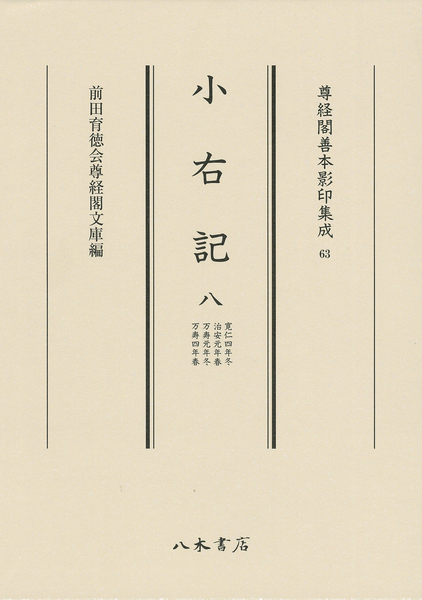 尊経閣善本影印集成 63
小右記 八
寛仁四年冬
治安元年春
万寿元年冬
万寿四年春
前田育徳会尊経閣文庫編
八木書店